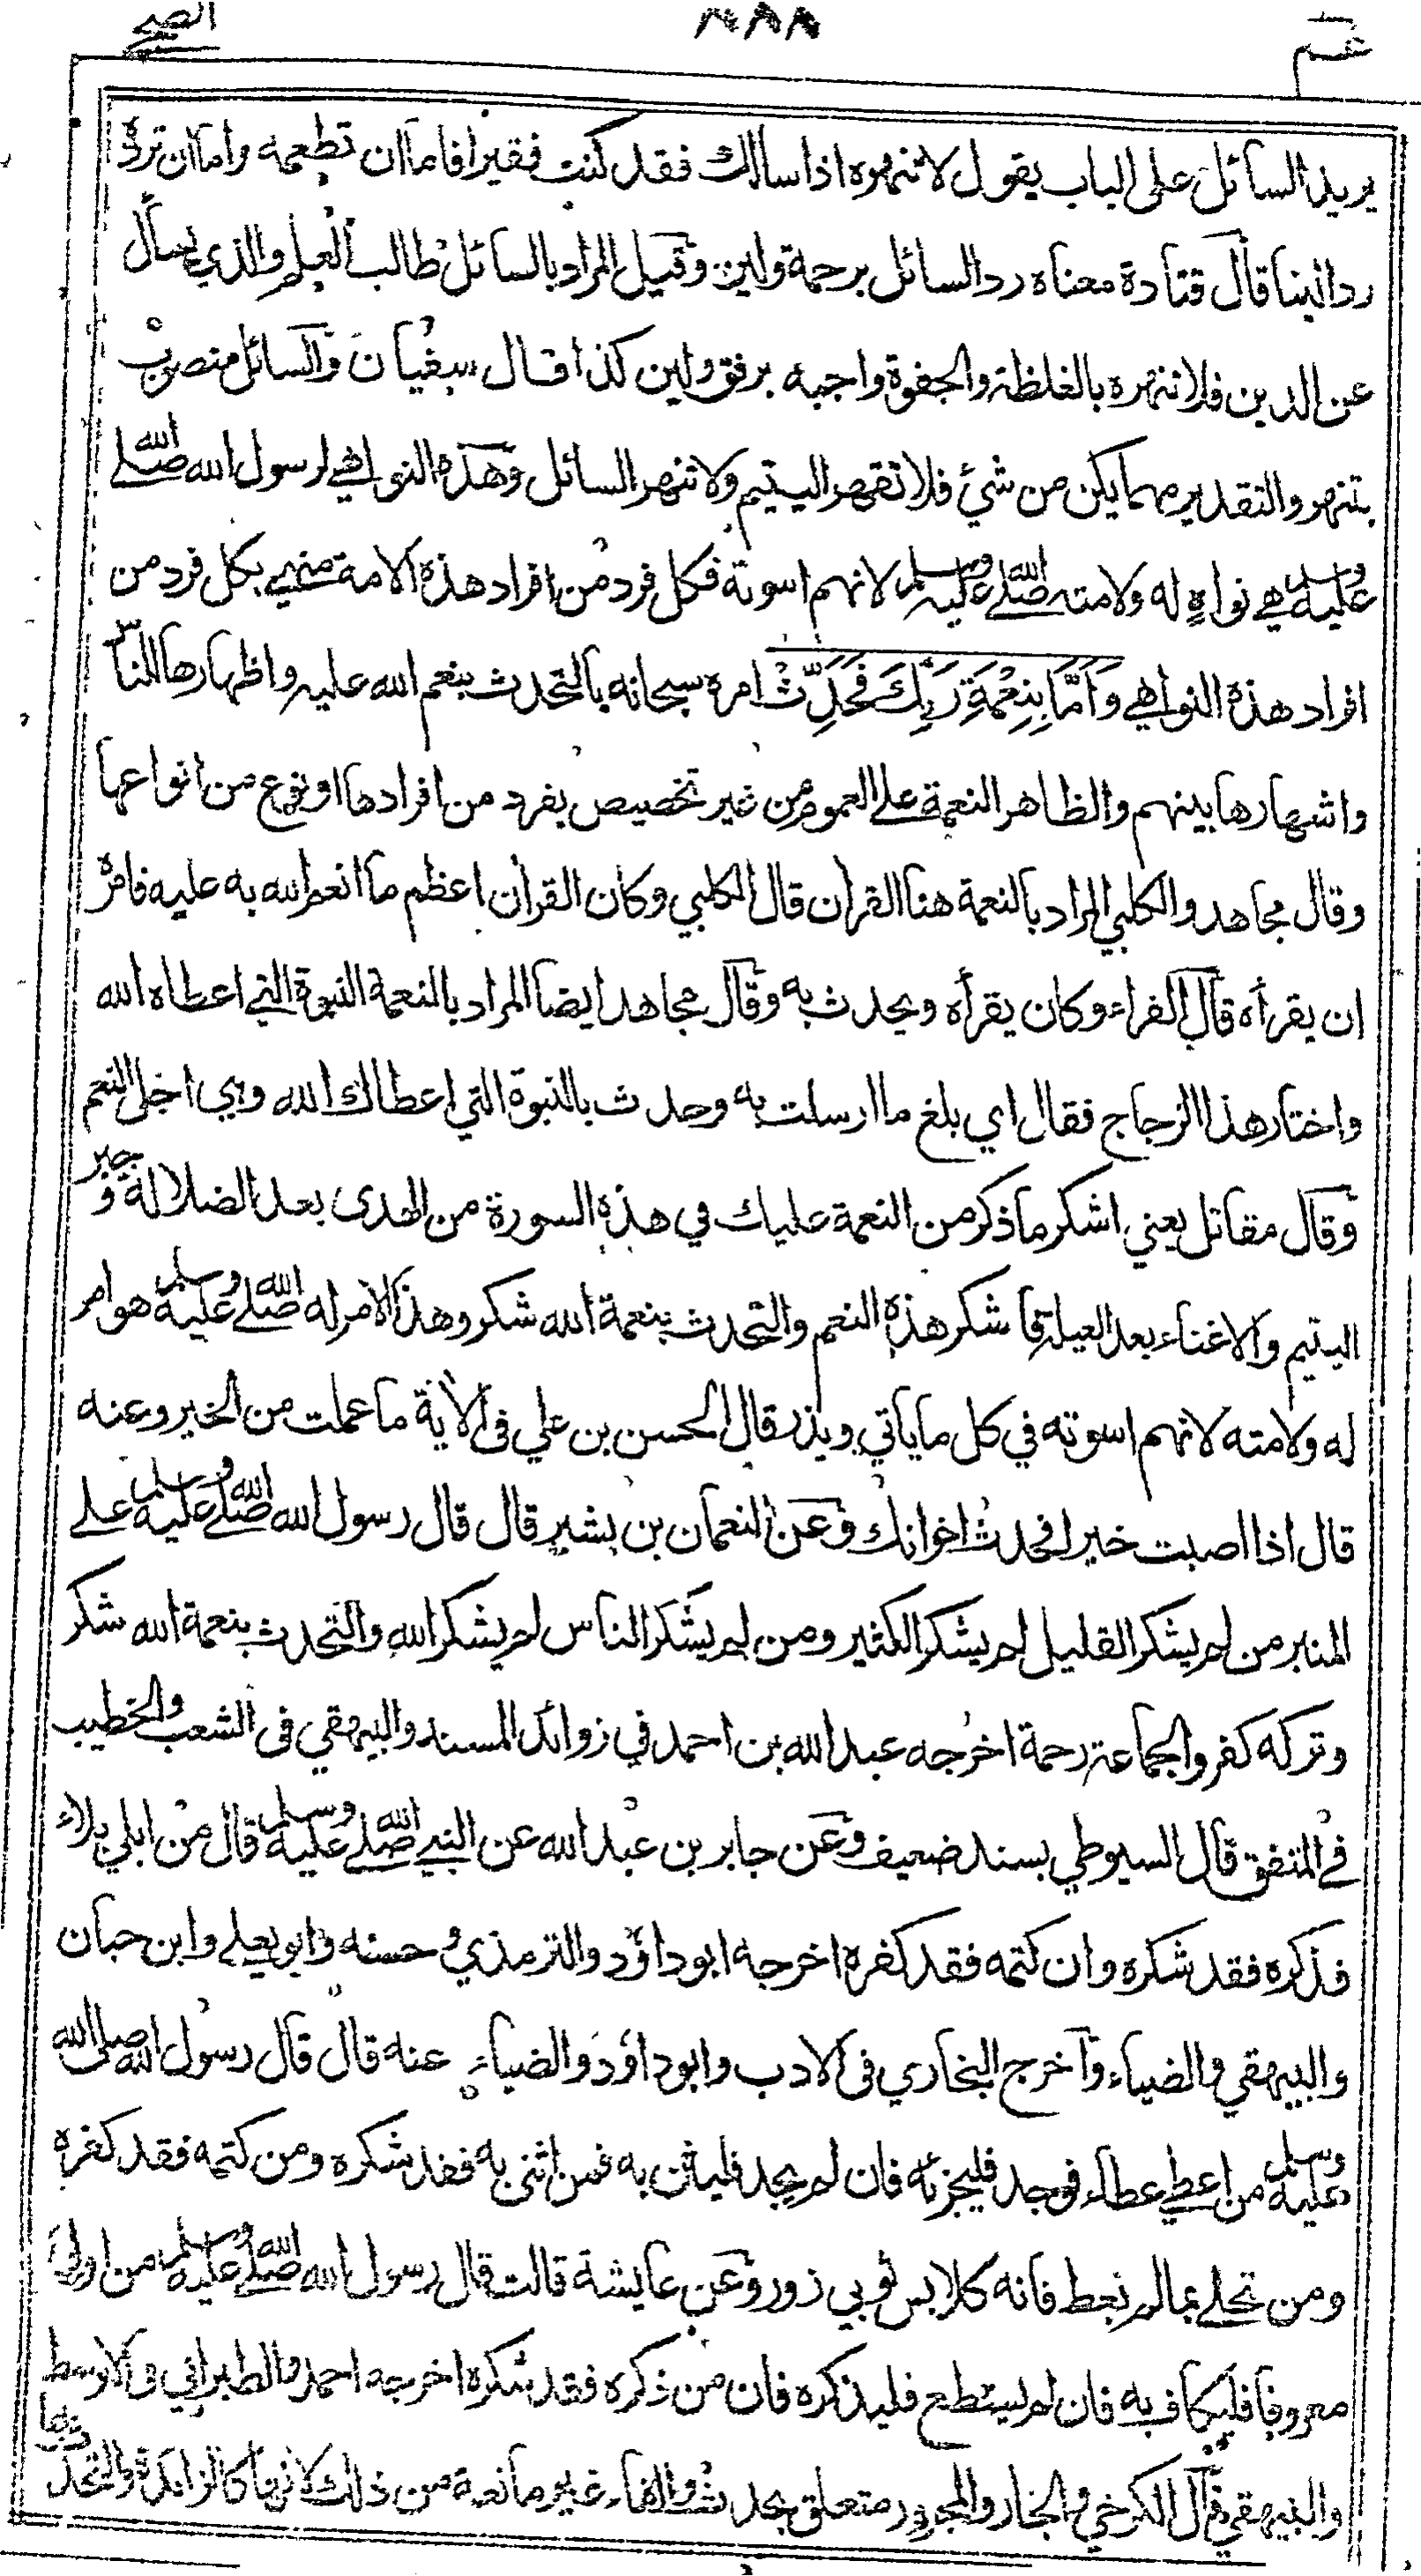 عم
٢٨٨
الضحى
يريد السائل على الباب يقول لا تنهره اذا سالك فقد كنت فقيرا فاما ان تطعمه واما ان ترده
ردا لينا قال قتادة معناه رد السائل برحمة ولين وقيل المراد بالسائل طالب العلم والذي يسأل
عن الدين فلا تنهره بالغلظة والجفوة واجبه برفق ولين كذا قال سفيان والسائل منصوب
بتنهر والتقدير مهما يكن من شئ فلا تقهر اليتيم ولا تنهر السائل وهذه النواهي لرسول الله صلى الله
عليه وسلم هي نواه له ولامته صلى الله عليه وسلم لانهم اسوته فكل فرد من افراد هذه الامة منهي بكل فرد من
افراد هذه النواهي وَاَمَّا بِنِعْمَةِ رَبِّكَ فَحَدِّثْ امره سبحانه بالتحدث بنعم الله عليه واظهارها للناس
واشهارها بينهم والظاهر النعمة على العموم من غير تخصيص بفرد من افرادها او نوع من انواعها
وقال مجاهد والكلبي المراد بالنعمة هنا القرآن قال الكلبي وكان القرآن اعظم ما انعم الله به عليه فامره
ان يقرأه قال الفراء وكان يقرأه ويحدث به وقال مجاهد ايضا المراد بالنعمة النبوة التي اعطاه الله
واختار هذا الزجاج فقال اي بلغ ما ارسلت به وحدث بالنبوة التي اعطاك الله وهي اجل النعم
وقال مقاتل يعني اشكر ما ذكر من النعمة عليك في هذه السورة من الهدى بعد الضلالة و جبر
اليتيم والاغناء بعد العيلة فاشكر هذه النعم والتحدث بنعمة الله شكر وهذا الامر له صلى الله عليه وسلم هو امر
له ولامته لانهم اسوته في كل ما ياتي ويذر قال الحسن بن علي فى الآية ما عملت من الخير وعنه
قال اذا اصبت خيرا فحدث اخوانك وعن النعمان بن بشير قال قال رسول الله صلى الله عليه وسلم على
المنبر من لم يشكر القليل لم يشكر الكثير ومن لم يشكر الناس لم يشكر الله والتحدث بنعمة الله شكر
وتركه كفر والجماعة رحمة اخرجه عبد الله بن احمد في زوائد المسند والبيهقي فى الشعب والخطيب
في المتفق قال السيوطي بسند ضعيف وعن جابر بن عبد الله عن النبي صلى الله عليه وسلم قال من ابلي بلاء
فذكره فقد شكره وان كتمه فقد كفره اخرجه ابو داؤد والترمذي وحسنه وابو يعلى وابن حبان
والبيهقي والضياء وآخرج البخاري فى الادب وابو داؤد والضياء عنه قال قال رسول الله صلى الله
عليه وسلم من اعطي عطاء فوجد فليجز به فان لم يجد فليثن به فمن اثنى به فقد شكره ومن كتمه فقد كفره
ومن تحلى بما لم يعط فانه كلابس ثوبي زور وعن عايشة قالت قال رسول الله صلى الله عليه وسلم من اولي
معروفا فليكاف به فان لم يستطع فليذكره فان من ذكره فقد شكره اخرجه احمد والطبراني فى الاوسط
والبيهقي قال الكرخي والجار والمجرور متعلق بحدث والفاء غير مانعة من ذلك لانها كالزائدة والتحدث